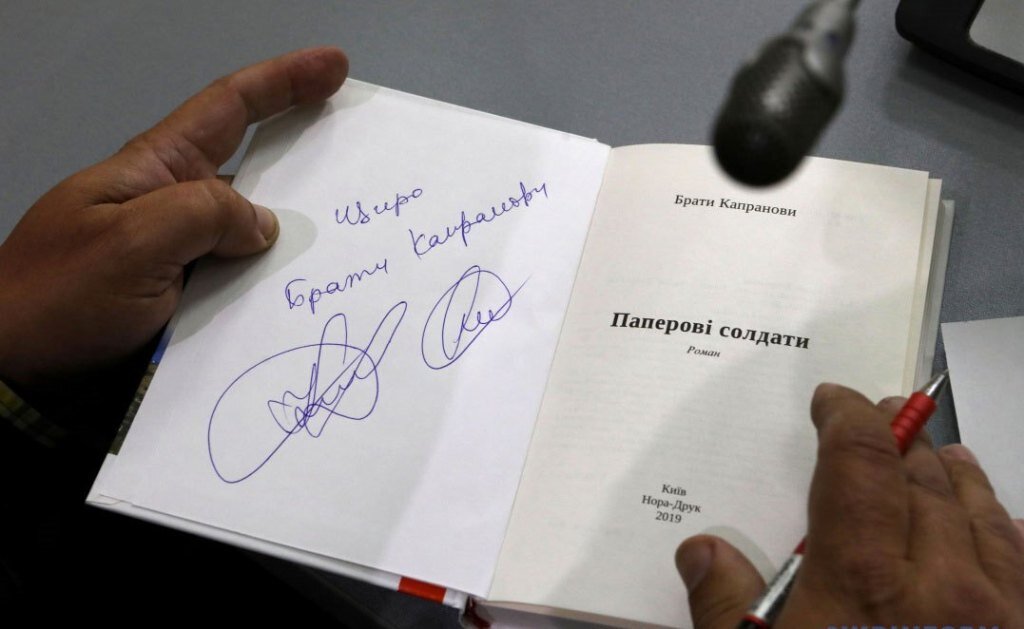 Щиро
Брати Капранови
Брати Капранови
Паперові солдати
Роман
Київ
Нора-Друк
2019